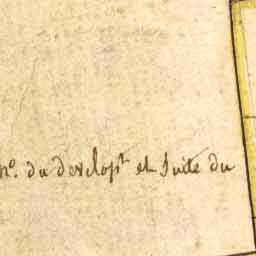 nº. du develop.t et Suite du